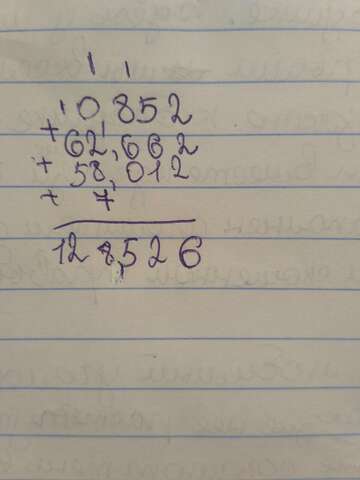 1 1
1 0,852
+ 62,662
+ 58,012
+ 7
128,526